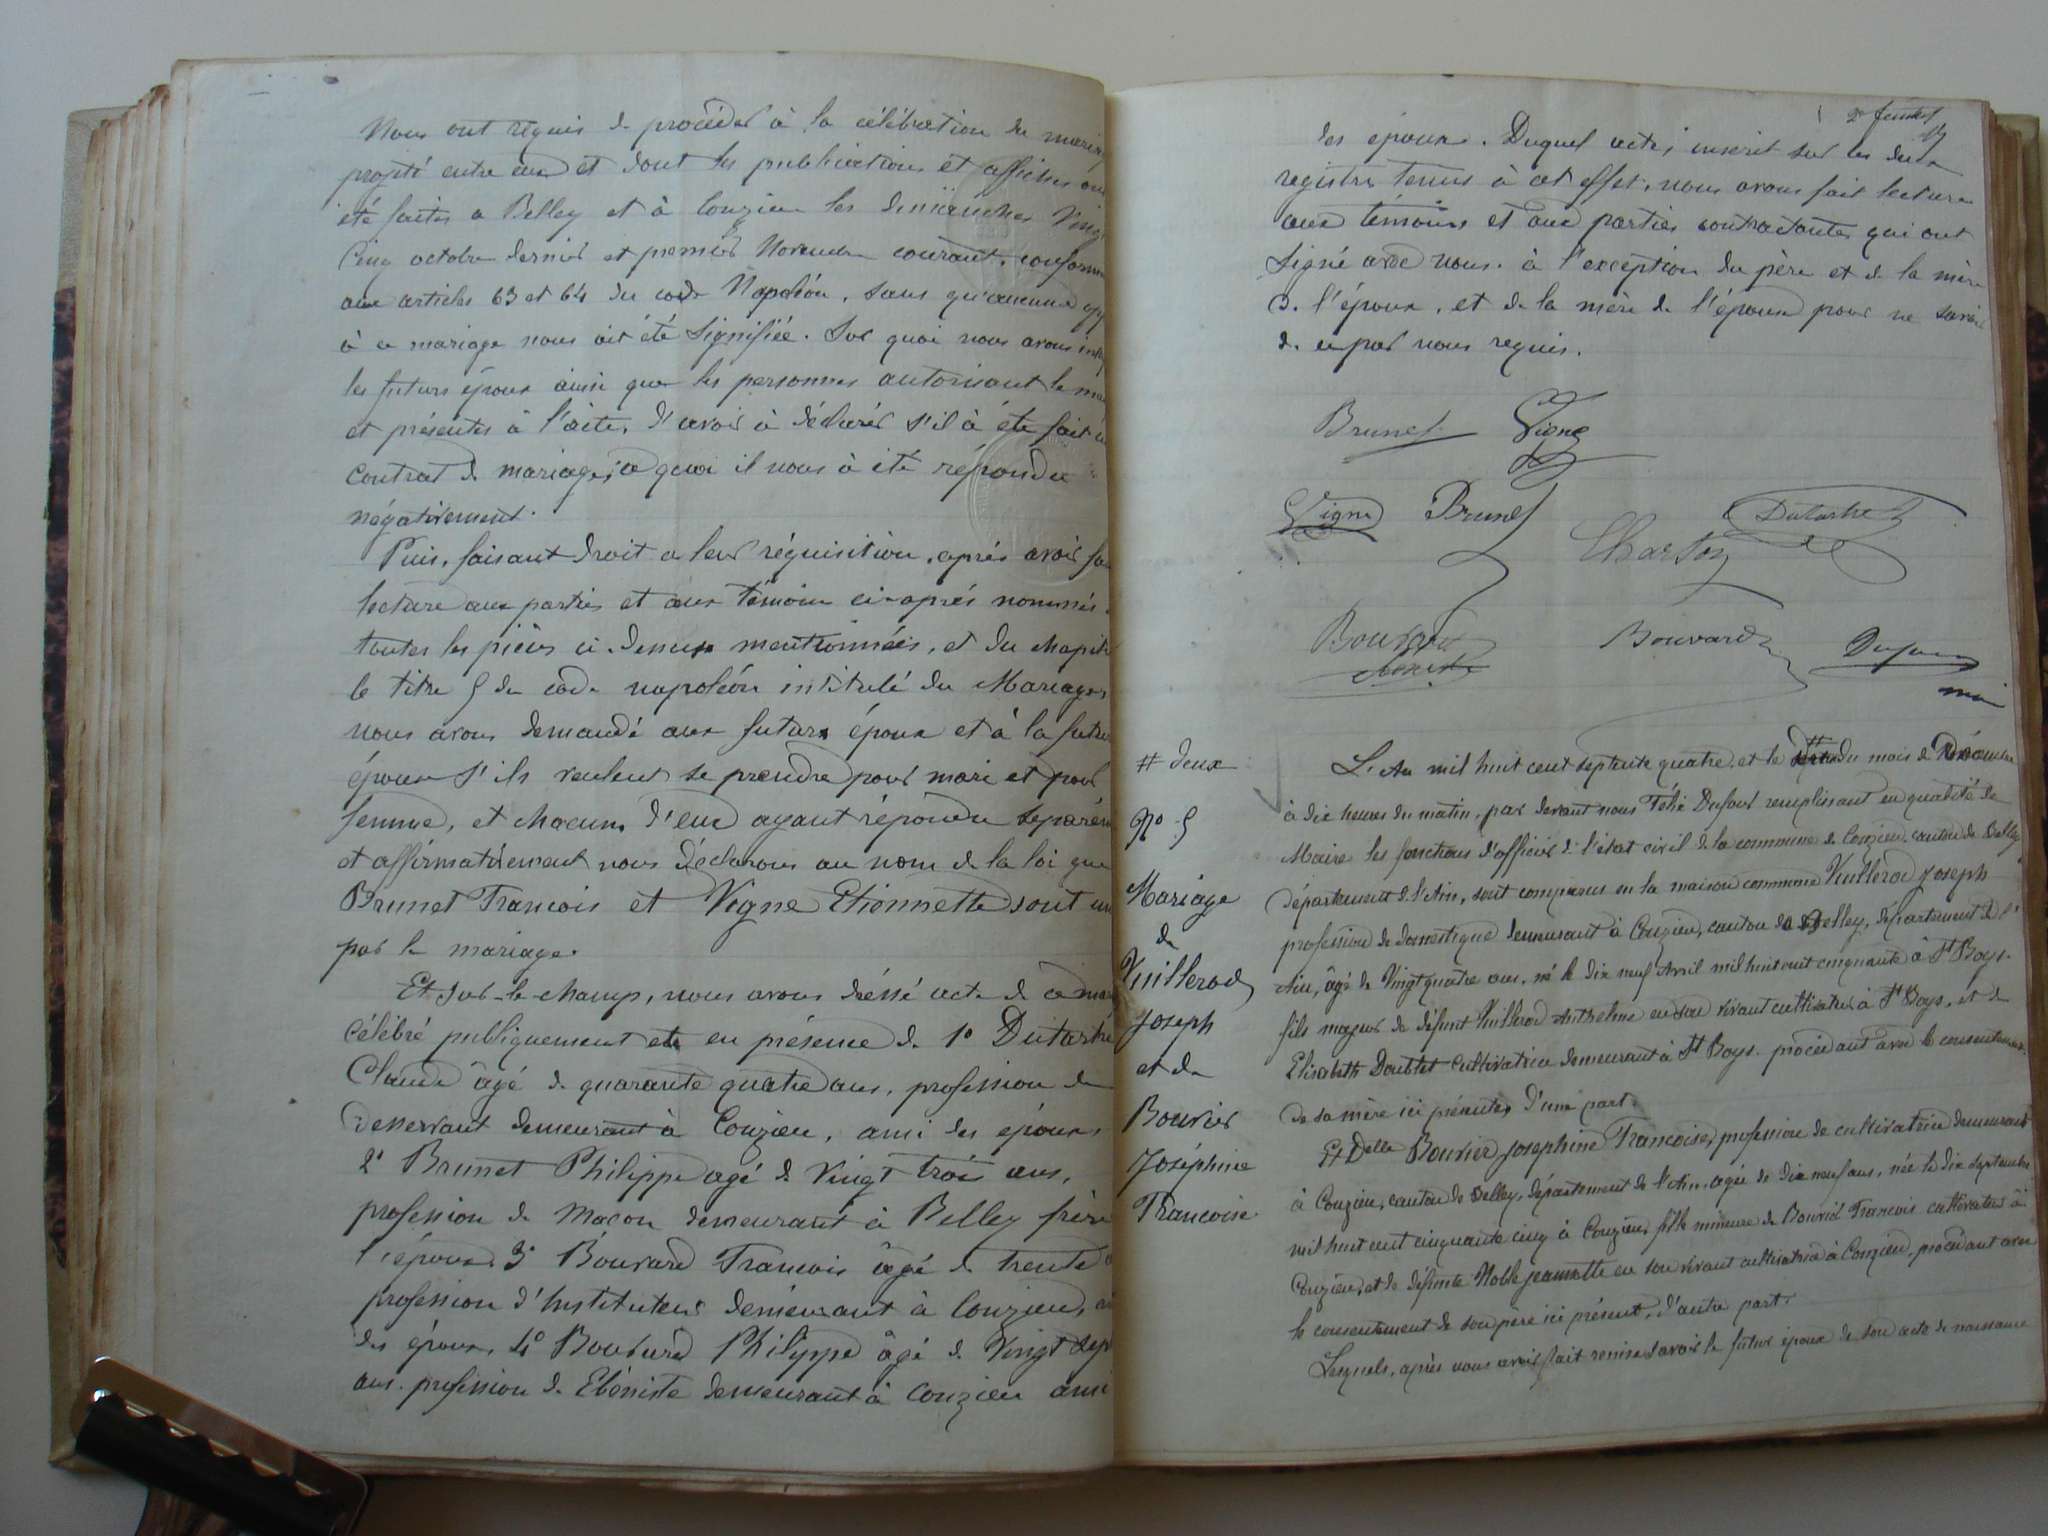 Nous ont requis de procéder à la célébration du maria
projeté entre eux et dont les publications et affiches ont
été faites a Belley et à Conzieu les dimanches Vingt
Cinq octobre dernier et premier Novembre courant. conform
aux articles 63 et 64 du code Napoléon. sans qu'aucune opp
à ce mariage nous ait été signifiée. Sur quoi nous avons inte
les futurs époux ainsi que les personnes autorisant le ma
et présentes à l'acte, d'avoir à déclarer s'il à été fait un
Contrat de mariage, a quoi il nous à été répondu
négativement.
Puis, faisant droit a leur réquisition, après avoir fa
lecture aux parties et aux témoins ci-après nommés.
toutes les pièces ci-dessus mentionnées, et du chapitre
le titre 5 du code napoléon intitulé du Mariage,
nous avons demandé aux futurs époux et à la future
épouse s'ils veulent se prendre pour mari et pour
femme, et chacun d'eux ayant répondu séparém
et affirmativement nous déclarons au nom de la loi que
Brunet Francois et Vigne Etionnette sont uni
par le mariage.
Et sur-le-champ, nous avons dréssé acte de ce mar
célébré publiquement et en présence de 1° Dutartre
Claude âgé de quarante quatre ans, profession de
desservant demeurant à Conzieu, ami des époux
2° Brunet Philippe agé de Vingt trois ans,
profession de Macon demeurant à Belley frère
l'époux. 3° Bouvard Francois âgé de trente
profession d'Instituteur demeurant à Conzieu, a
des époux, 4° Philippe âgé de Vingt sept
ans. profession de Ebéniste demeurant à Conzieu ami
2e feuillet
des époux. Duquel acte, inscrit sur les deux
registres tenus à cet effet, nous avons fait lecture
aux témoins et aux parties contractantes qui ont
signé avec nous. à l'exception du père et de la mère
de l'époux, et de la mère de l'épouse pour ne savoir
de ce par nous requis.
Brunet Vigne
Vigne Brunet Dutartre
Bouvard
Dufour
# deux
N° 5
Mariage
de
Vuillerod
Joseph
et de
Bouvier
Joséphine
Francoise
L'An mil huit cent septente quatre, et le # du mois de Décembre
à dix heures du matin, par devant nous Félix Dufour remplissant en qualité de
Maire les fonctions d'officier de l'état civil de la commune de Conzieu canton de Belley
département de l'Ain, sont comparus en la maison commune Vuillerod Joseph
profession de domestique demeurant à Conzieu, canton de Belley, département de l'
Ain, âgé de Vingt quatre ans, né le dix neuf Avril mil huit cent cinquante à St Boys.
fils majeur de défunt Vuillerod Anthelme en son vivant cultivateur à St Boys, et de
Elisabeth Doublet cultivatrice demeurant à St Boys. procédant avec le consentement
de sa mère ici présente, d'une part.
Et Delle Bouvier Josephine Francoise, profession de cultivatrice demeurant
à Conzieu, canton de Belley, département de l'Ain, agée de dix neuf ans, née le dix septembre
mil huit cent cinquante cinq à Conzieu, fille mineure de Bouvier Francois cultivateur à
Conzieu, et de défunte Noble jeannette en son vivant cultivatrice à Conzieu, procédant avec
le consentement de son père ici présent, d'autre part.
Lesquels, après nous avoir fait remise savoir le futur époux de son acte de naissance